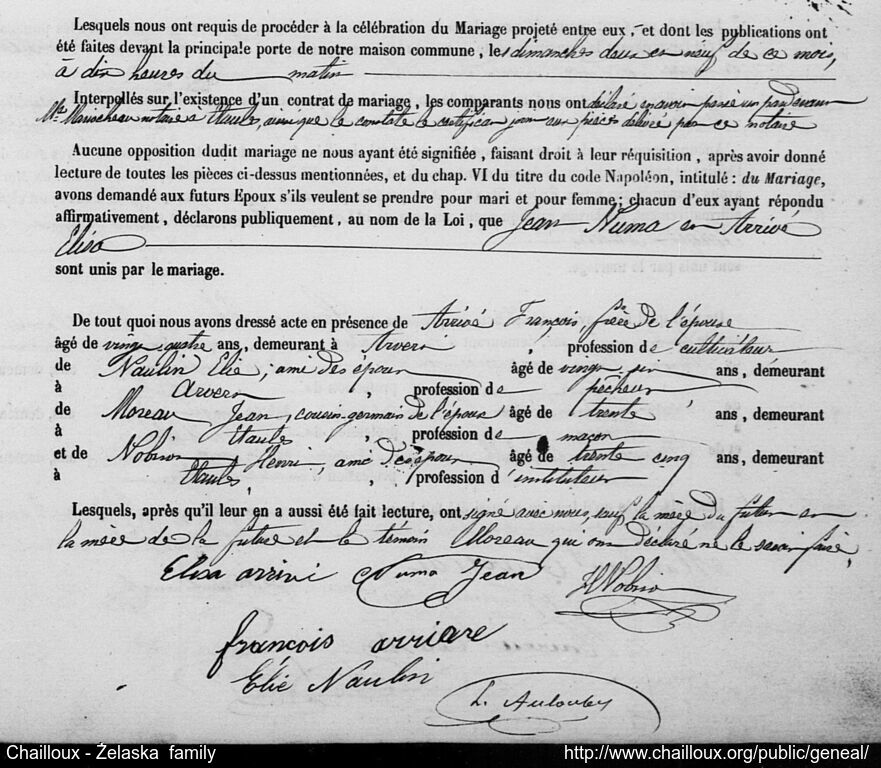 Lesquels nous ont requis de procéder à la célébration du Mariage projeté entre eux, et dont les publications ont
été faites devant la principale porte de notre maison commune, les dimanches deux et neuf de ce mois,
à dix heures du matin
Interpellés sur l'existence d'un contrat de mariage, les comparants nous ont déclaré en avoir passé un pardevant
Me notaire à Etaules, ainsi que le constate le certificat joint aux pièces délivré par ce notaire
Aucune opposition dudit mariage ne nous ayant été signifiée, faisant droit à leur réquisition, après avoir donné
lecture de toutes les pièces ci-dessus mentionnées, et du chap. VI du titre du code Napoléon, intitulé : du Mariage,
avons demandé aux futurs Epoux s'ils veulent se prendre pour mari et pour femme; chacun d'eux ayant répondu
affirmativement, déclarons publiquement, au nom de la Loi, que Jean Numa et Arrivé
Elisa
sont unis par le mariage.
De tout quoi nous avons dressé acte en présence de Arrivé François, frère de l'épouse
âgé de vingt quatre ans, demeurant à Arvert, profession de cultivateur
de Naulin Elie, ami des époux âgé de vingt six ans, demeurant
à Arvert, profession de pêcheur
de Moreau Jean, cousin germain de l'épouse âgé de trente ans, demeurant
à Etaules, profession de maçon
et de Henri, ami des époux âgé de trente cinq ans, demeurant
à Etaules, profession d'instituteur
Lesquels, après qu'il leur en a aussi été fait lecture, ont signé avec nous, sauf la mère du futur et
la mère de la future et le témoin Moreau qui ont déclaré ne le savoir faire,
Elisa arrivé Numa Jean
françois arrivé
Elie Naulin
Chailloux - Želaska family http://www.chailloux.org/public/geneal/